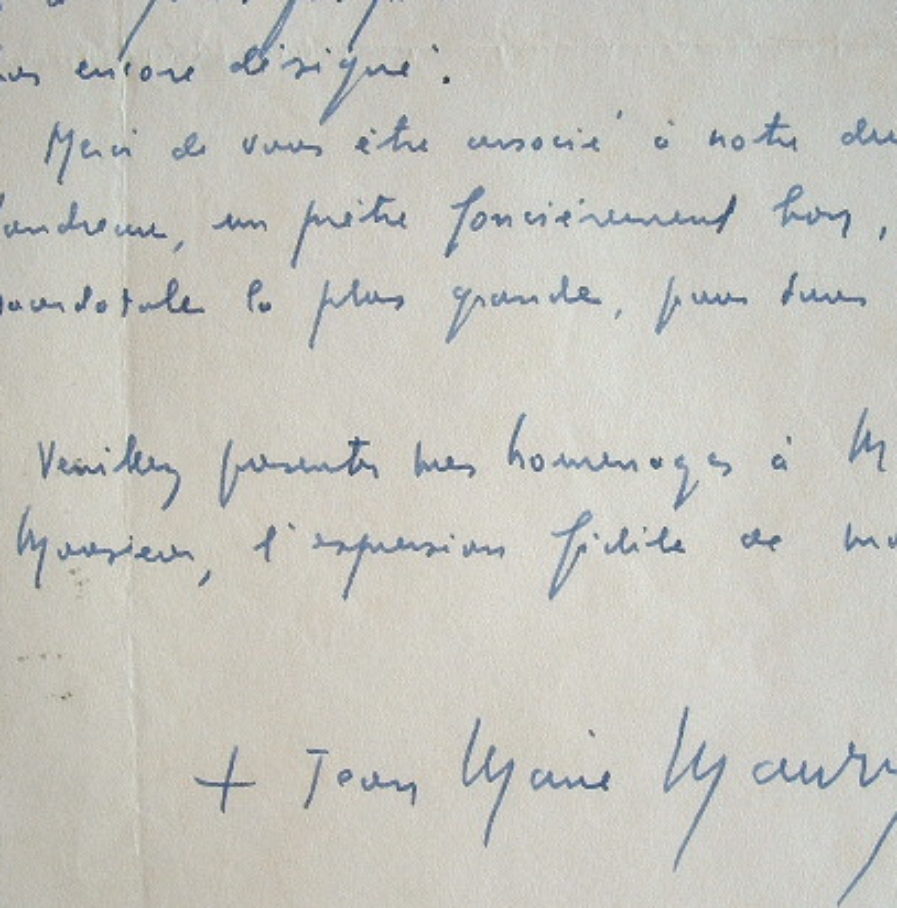 encore désigné.
Merci de vous être associé à notre
un prêtre foncièrement bon,
la plus grande, pour tous
Veuillez présenter mes hommages à M
Monsieur, l'expression fidèle de
+ Jean Marie Maury